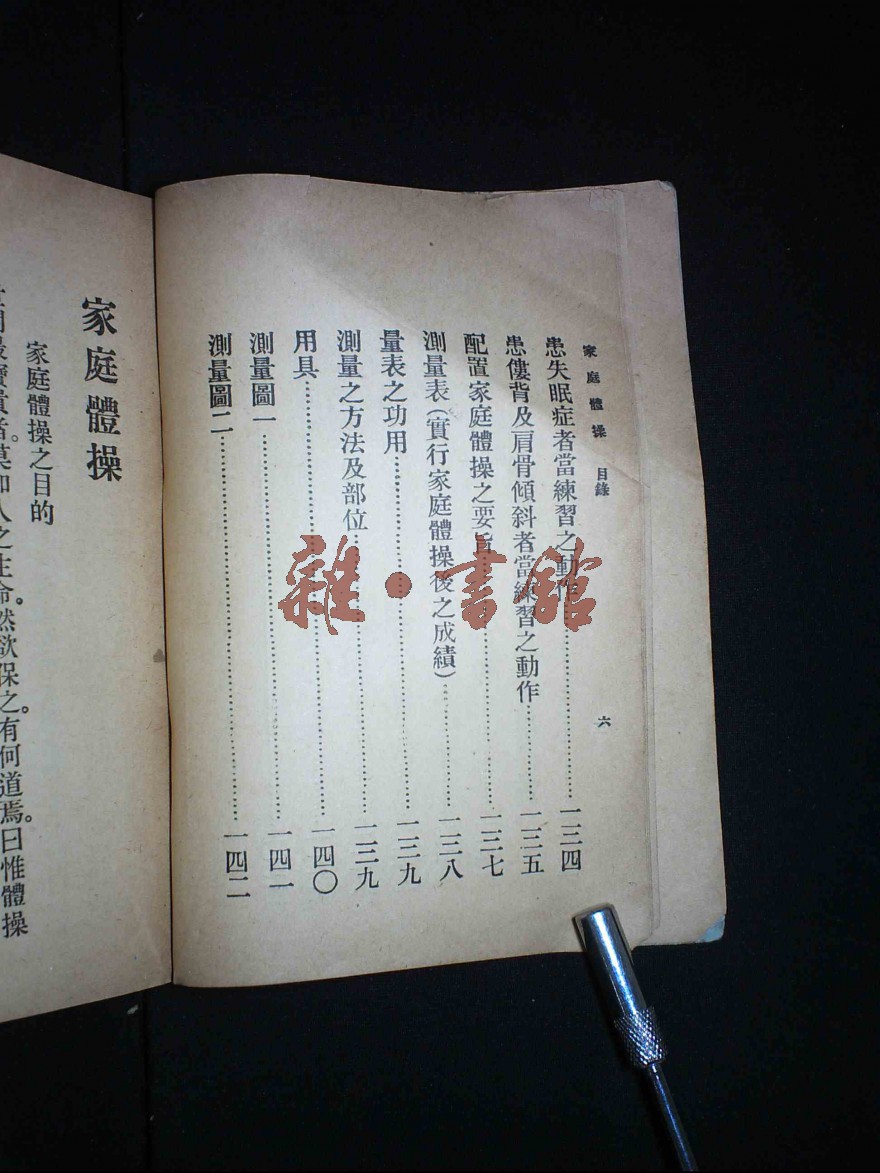 家庭體操 目錄 六
患失眠症者當練習之動作……一三四
患僂背及肩骨傾斜者當練習之動作……一三五
配置家庭體操之要旨……一三七
測量表(實行家庭體操後之成績)……一三八
量表之功用……一三九
測量之方法及部位……一三九
用具……一四〇
測量圖一……一四一
測量圖二……一四二
家庭體操
家庭體操之目的
最寶貴者。莫如人之生命。然欲保之。有何道焉。曰惟體操
雜·書館